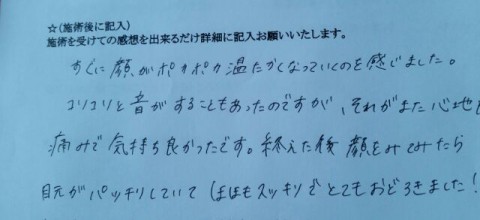 ☆(施術後に記入)
施術を受けての感想を出来るだけ詳細に記入お願いいたします。
すぐに顔がポカポカ温たかくなっていくのを感じました。
コリコリと音がすることもあったのですが、それがまた心地
痛みで気持ち良かったです。終えた後 顔をみてみたら
目元がパッチリしていて ほほもスッキリでとてもおどろきました!